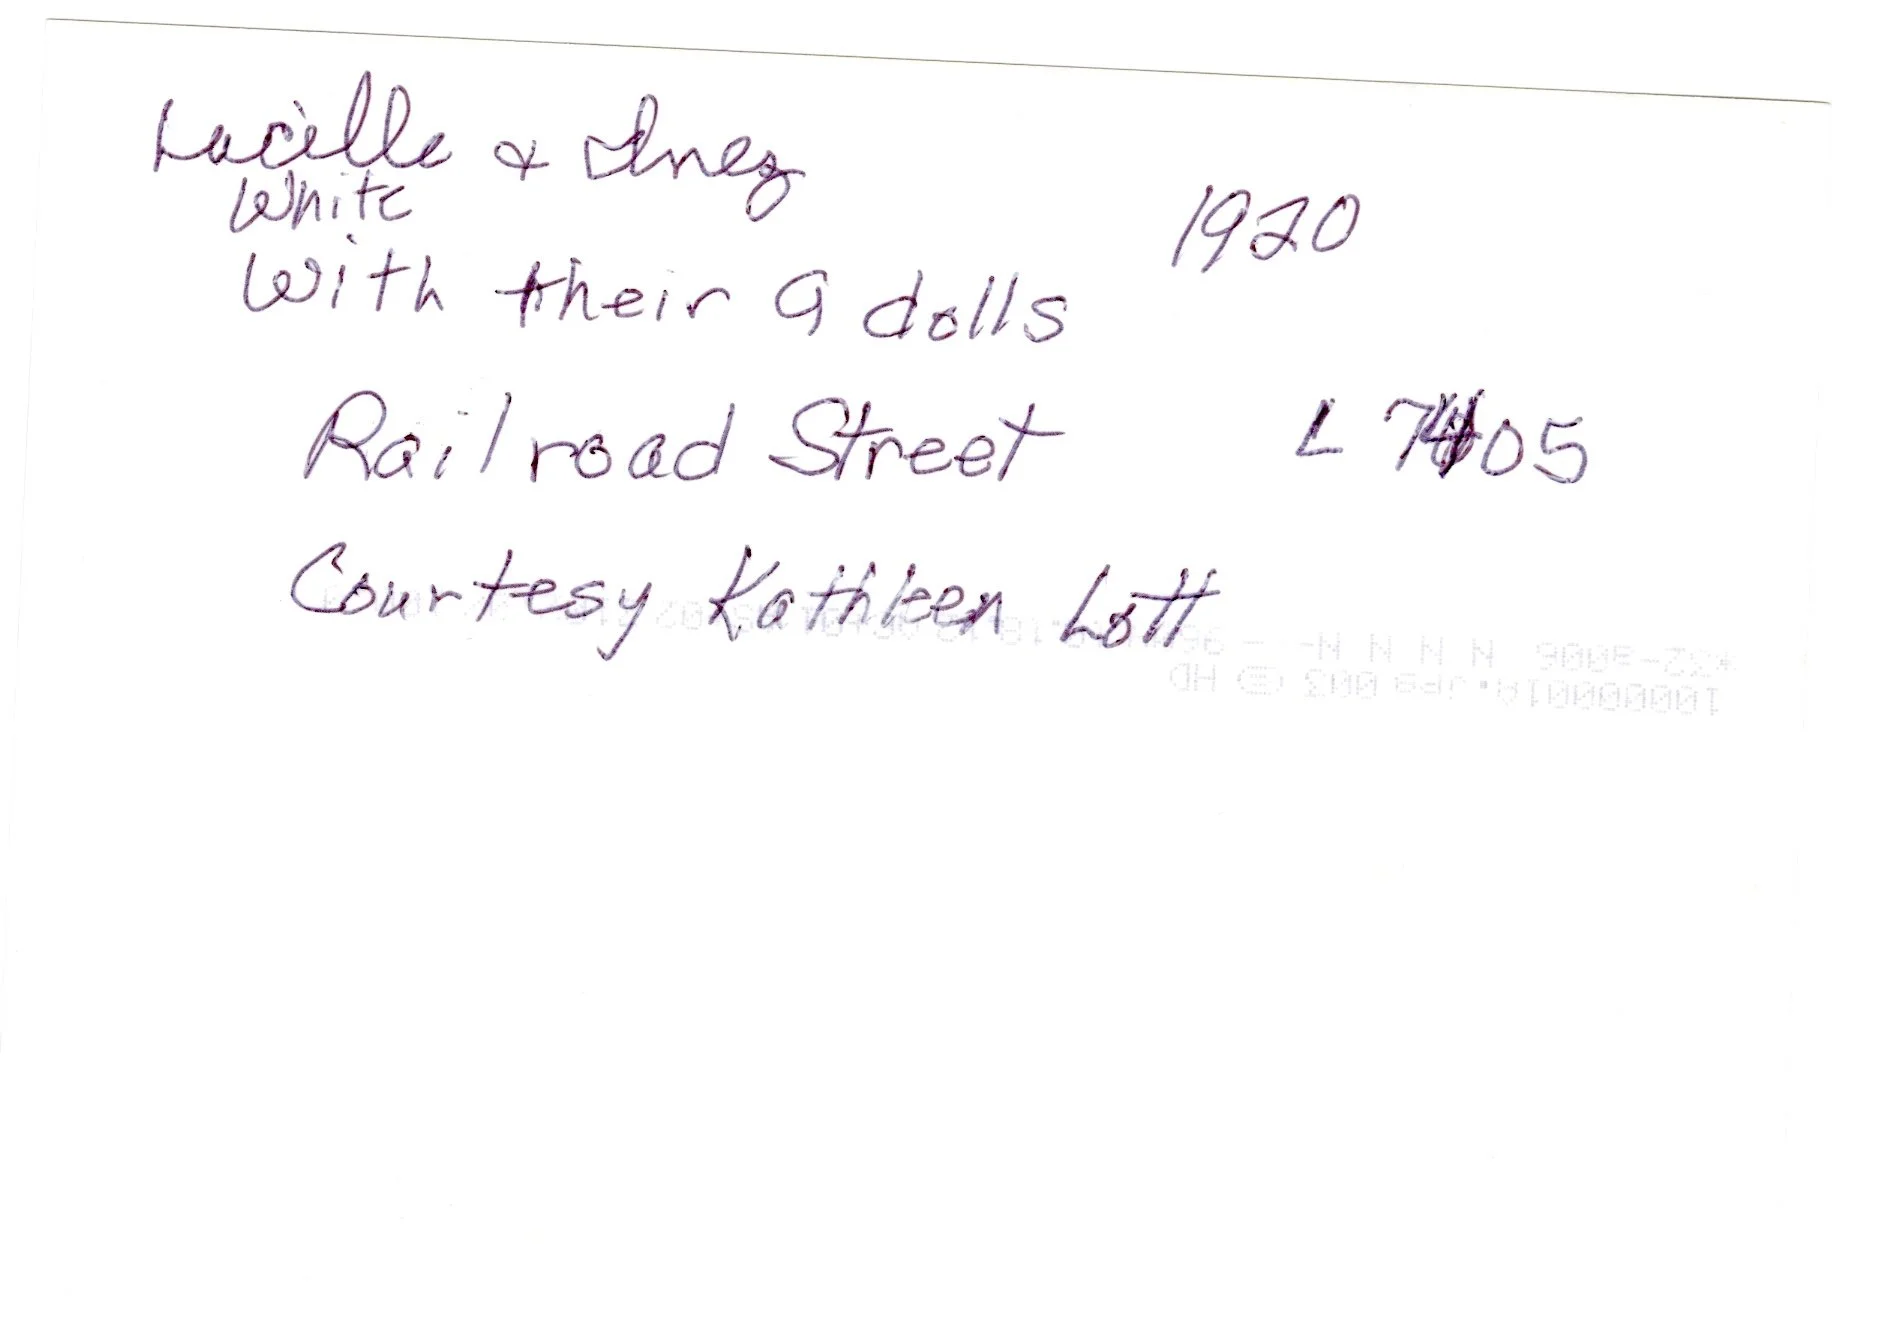 Lucille & Inez
White
1920
With their 9 dolls
Railroad Street L 7405
Courtesy Kathleen Lott
*32-3006 N N N N- -
10000001A.JPG 003 HD